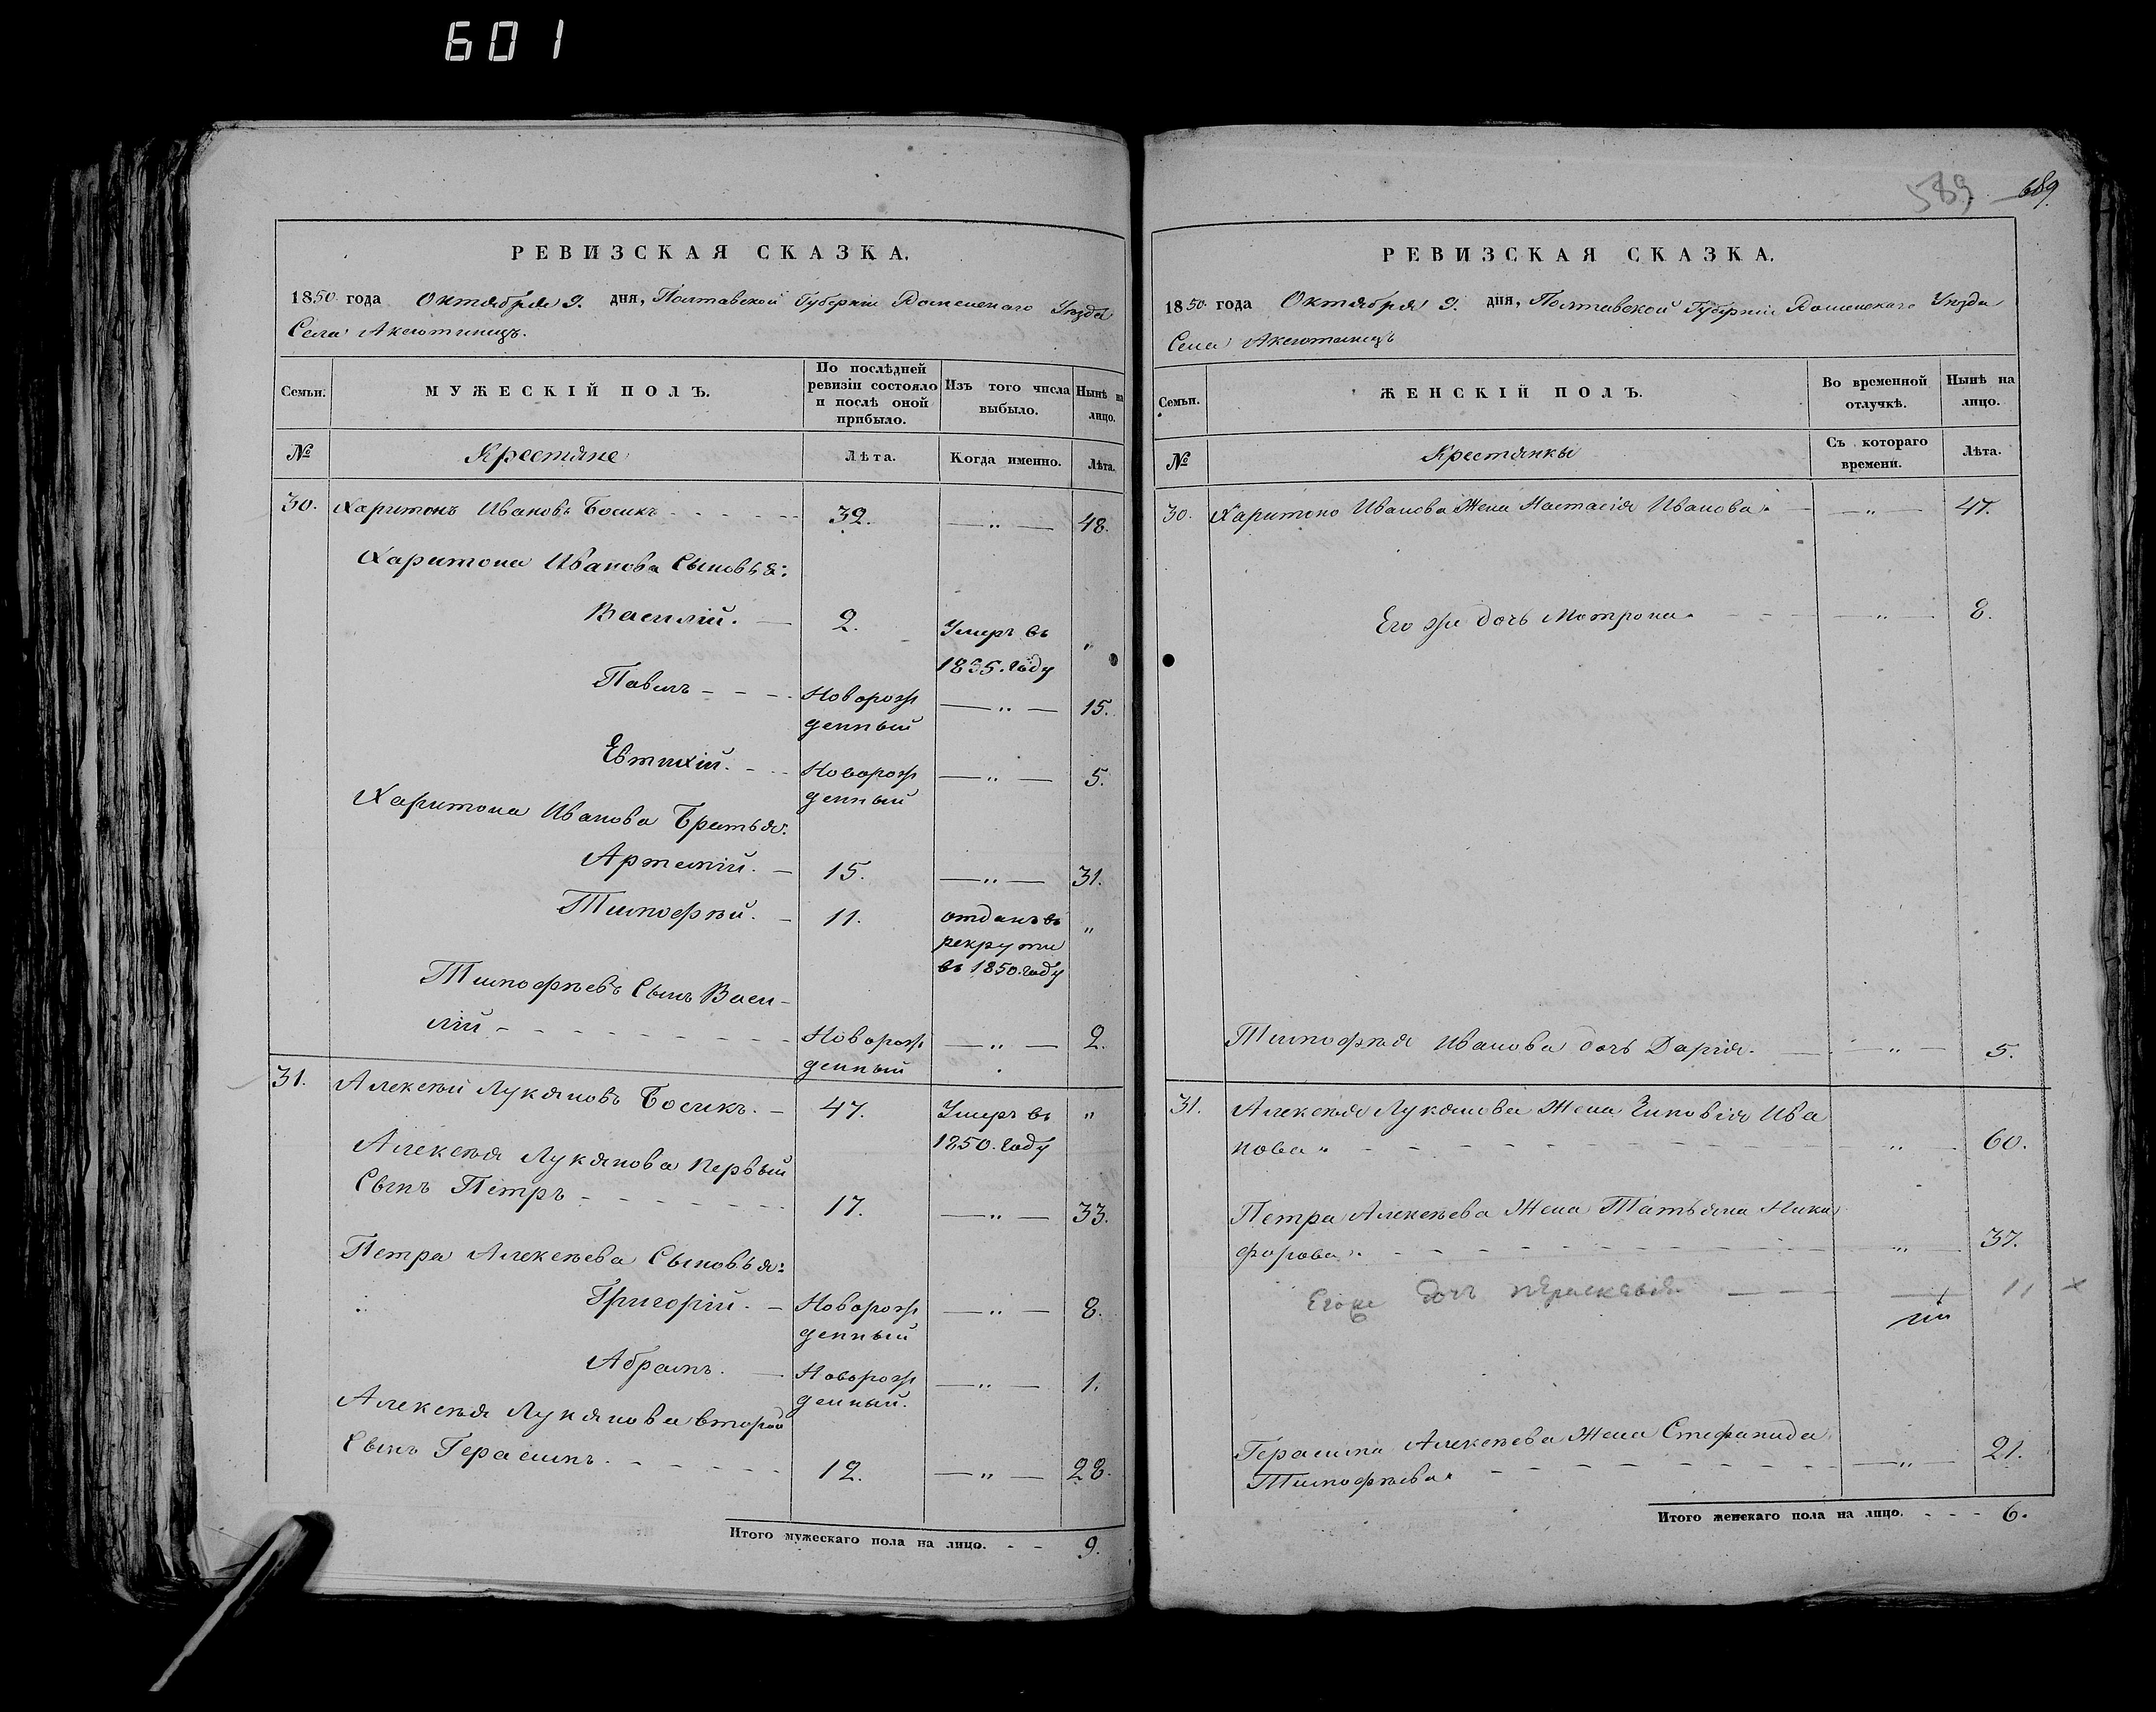 601
РЕВИЗСКАЯ СКАЗКА.
1850 года Октября 9. дня, Полтавской Губерніи Роменскаго Уѣзда
Села Аксютинецъ.
Семьи.
МУЖЕСКІЙ ПОЛЪ.
По послѣдней
ревизіи состояло
и послѣ оной
прибыло.
Изъ того числа
выбыло.
Нынѣ на
лицо.
№
Крестяне
Лѣта.
Когда именно.
Лѣта.
30. Харитонъ Ивановъ Босикъ - - - - - 32. — „ — 48.
Харитона Иванова Сыновья:
Василій. — 2. Умеръ въ „
1835. году
Павелъ - - - - Новорож — „ — 15.
денный
Евтихій. - - Новорож — „ — 5.
денный
Харитона Иванова Братья:
Артемій. — 15. — „ — 31.
Тимофѣй. — 11. отданъ въ „
рекруты
въ 1850. году
Тимофѣевъ Сынъ Васи-
лій - - - - - - - - Новорож — „ — 2.
денный
31. Алексѣй Лукяновъ Босикъ. — 47. Умеръ въ „
1850. году
Алексѣя Лукянова первый
Сынъ Петръ - - - - - - - 17. — „ — 33.
Петра Алексѣева Сыновья:
Григорій. — Новорож — „ — 8.
денный
Абрамъ. — Новорож — „ — 1.
денный.
Алексѣя Лукянова второй
Сынъ Герасимъ. - - - - - 12. — „ — 28.
Итого мужескаго пола на лицо. - - 9.
589 689.
РЕВИЗСКАЯ СКАЗКА.
1850 года Октября 9. дня, Полтавской Губерніи Роменскаго Уѣзда
Села Аксютинецъ
Семьи.
ЖЕНСКІЙ ПОЛЪ.
Во временной
отлучкѣ.
Нынѣ на
лицо.
№
Крестянки
Съ котораго
времени.
Лѣта.
30. Харитона Иванова Жена Настасія Иванова. — „ — 47.
Его же дочь Мотрона. - - — „ — 8.
Тимофѣя Иванова дочь Дарія. — „ — 5.
31. Алексѣя Лукянова Жена Зиновія Ива
нова. - - - - - - - - „ - 60.
Петра Алексѣева Жена Татьяна Ники
форова. - - - - - - - - „ — 37.
Егоже дочъ Параскавія - — - - — 11 ×
Герасима Алексѣева Жена Стефанида
Тимофѣева. - - - - - - - - — „ — 21.
Итого женскаго пола на лицо. - - - 6.